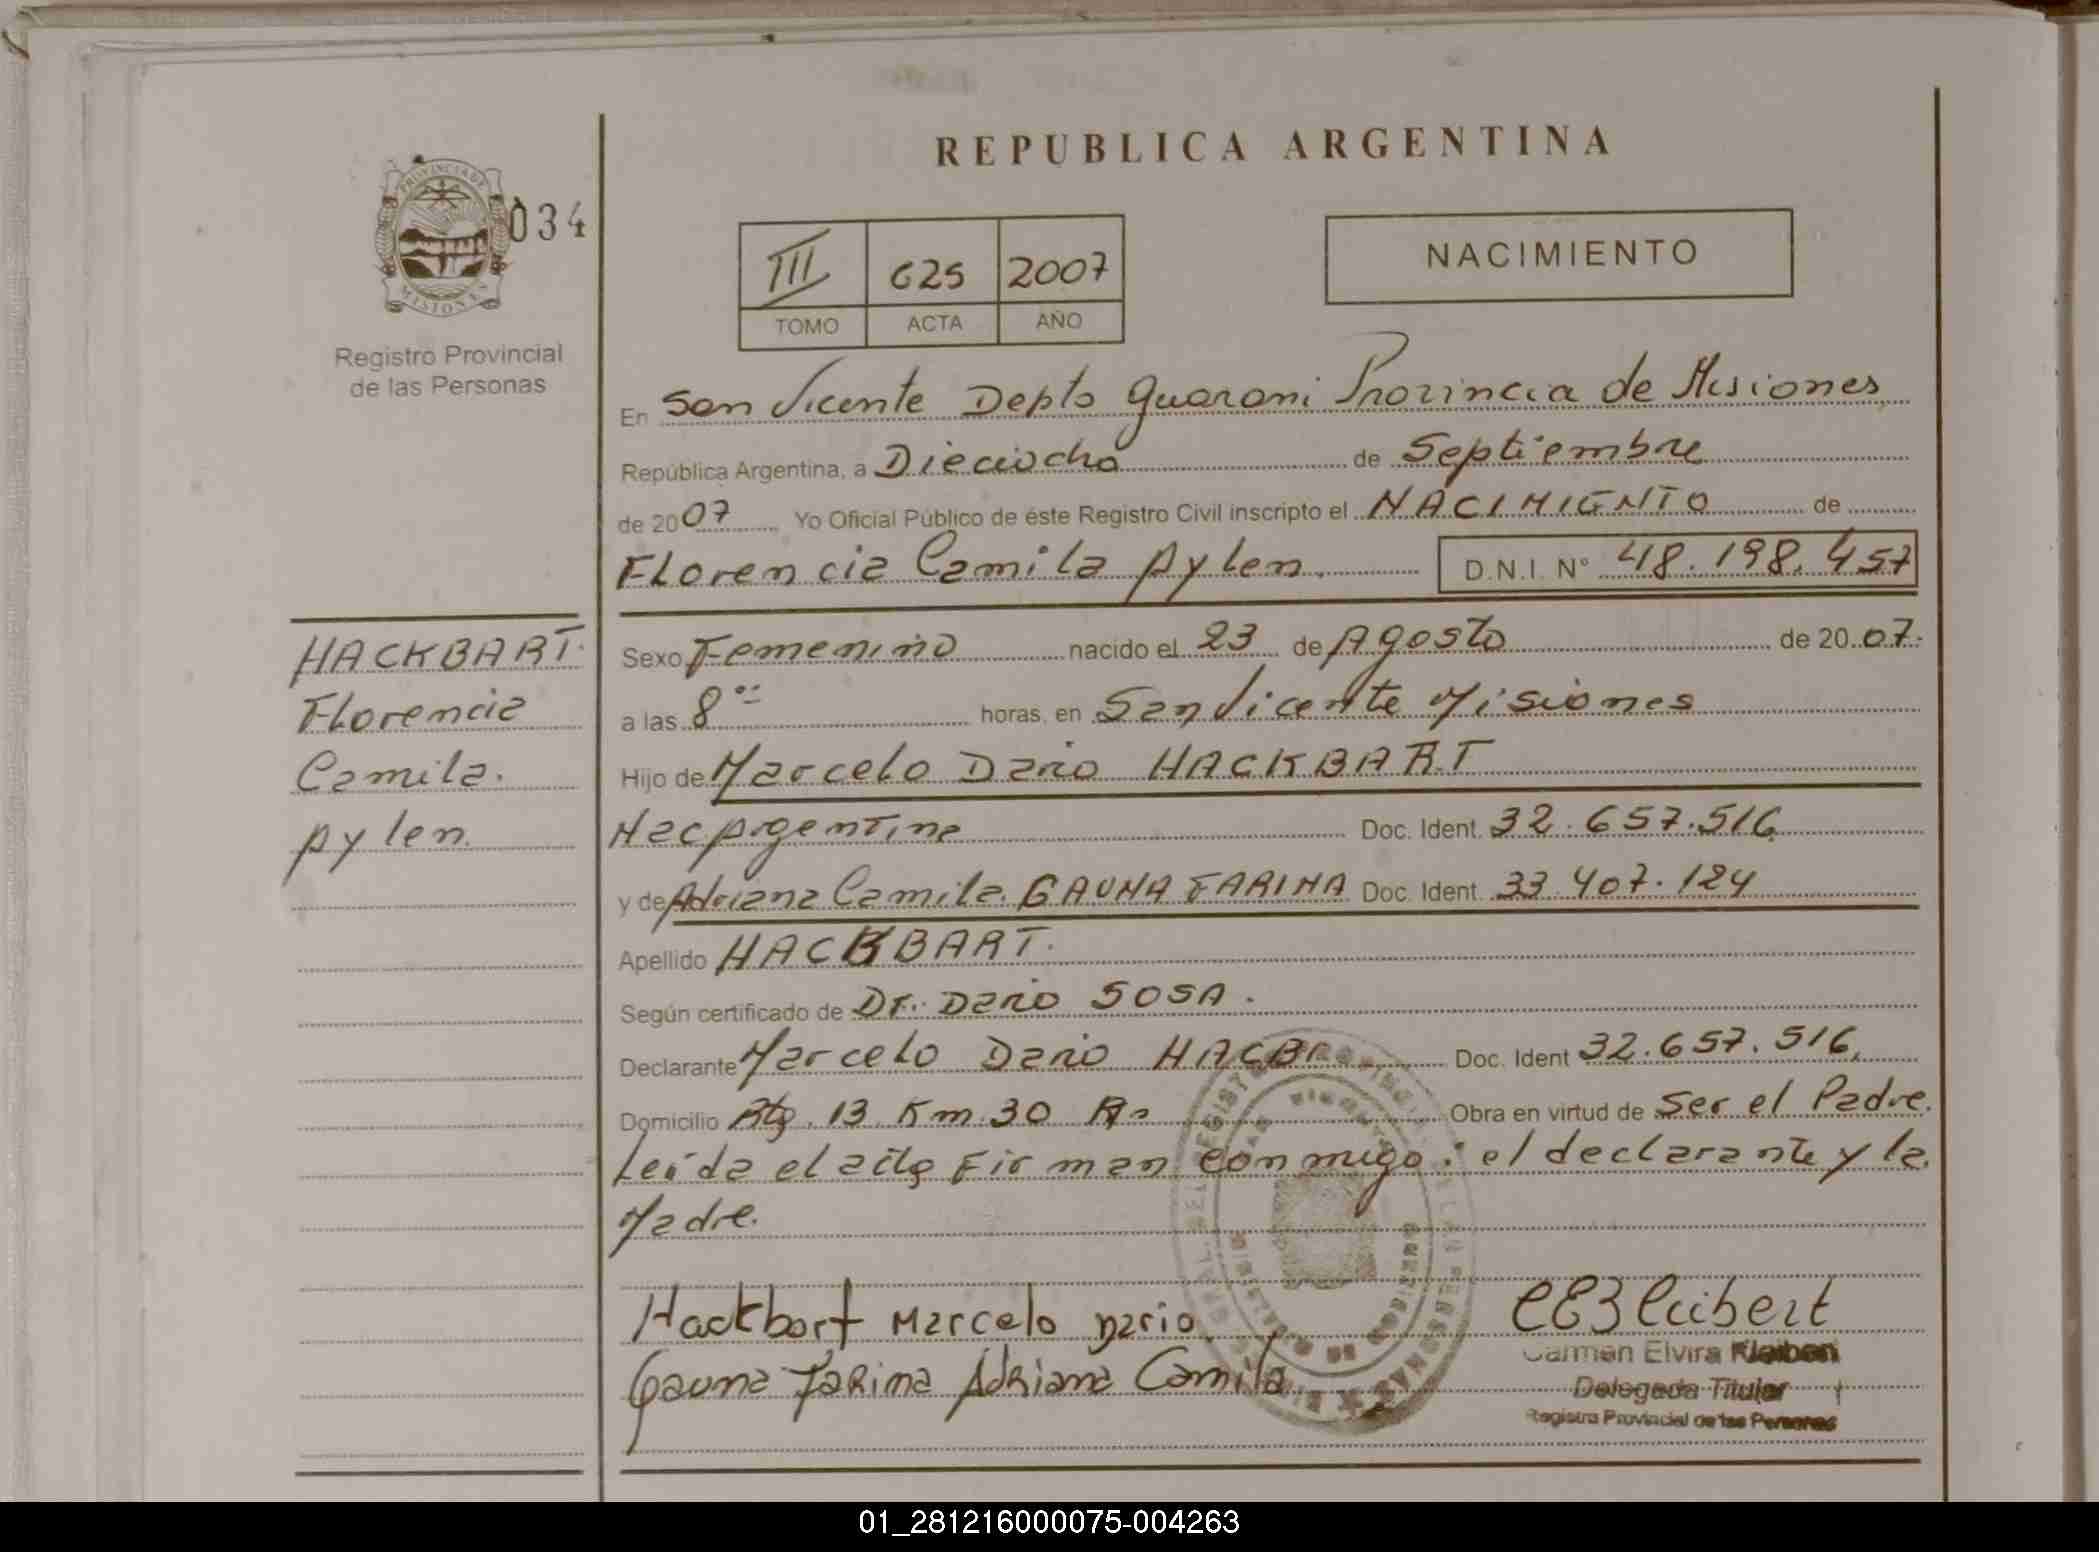 REPUBLICA ARGENTINA
PROVINCIA DE
MISIONES
034
Registro Provincial
de las Personas
III 625 2007
TOMO ACTA AÑO
NACIMIENTO
En San Vicente Depto Guarani Provincia de Misiones
República Argentina, a Dieciocho de Septiembre
de 2007 Yo Oficial Público de éste Registro Civil inscripto el NACIMIENTO de
Florencia Camila Aylen. D.N.I. N° 48.198.457
HACKBART.
Florencia
Camila.
Aylen.
Sexo Femenino nacido el 23 de Agosto de 2007.
a las 8 horas, en San Vicente Misiones
Hijo de Marcelo Dario HACKBART
Nac Argentina Doc. Ident. 32.657.516
y de Adriana Camila GAUNA FARINA Doc. Ident. 33.407.124
Apellido HACKBART.
Según certificado de Dr. Dario SOSA.
Declarante Marcelo Dario Doc. Ident 32.657.516
Domicilio Rta. 13 Km. 30 Obra en virtud de Ser el Padre.
Leida el acta Firman conmigo: el declarante y la
Madre.
Hackbart Marcelo Dario
Gauna Farina Adriana Camila
Carmen Elvira
Delegada Titular
Registro Provincial de las Personas
01_281216000075-004263